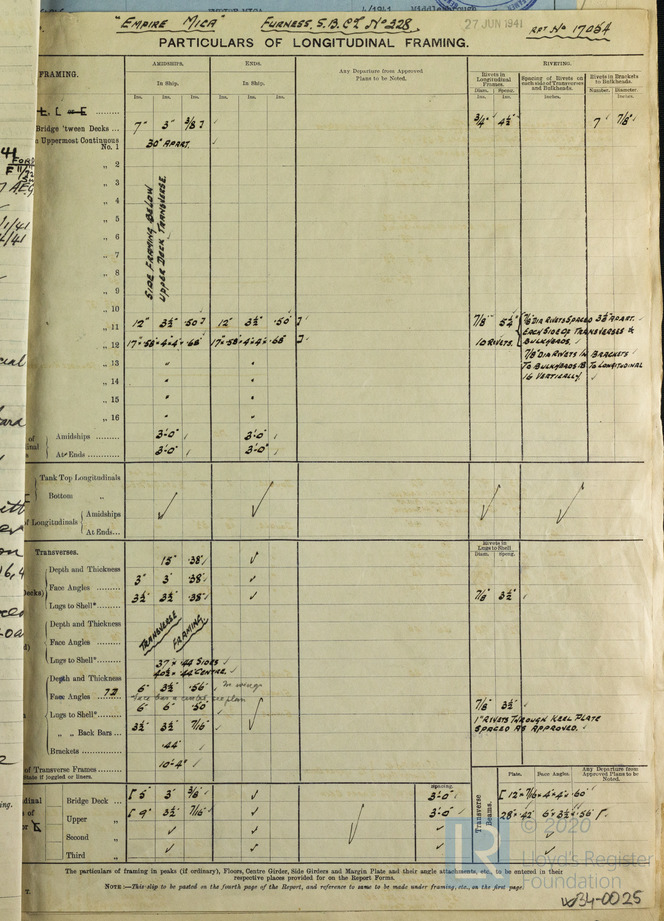 "EMPIRE MICA" FURNESS, S.B. Co Lᵈ Nº 328 27 JUN 1941 RPT. Nº 17054
PARTICULARS OF LONGITUDINAL FRAMING.
FRAMING. AMIDSHIPS. ENDS. RIVETING.
In Ship. In Ship. Any Departure from Approved Plans to be Noted. Rivets in Longitudinal Frames. Spacing of Rivets on each side of Transverses and Bulkheads. Rivets in Brackets to Bulkheads.
Ins. Ins. Ins. Ins. Ins. Ins. Diam. Spcng. Inches. Number. Diameter.
Bridge 'tween Decks ... 7" 3" 3/8" ¾" 4½" 7 7/8"
Uppermost Continuous No. 1 30" APART.
„ 2
„ 3
„ 4
„ 5
„ 6
„ 7
„ 8
„ 9
„ 10
SIDE FRAMING BELOW
UPPER DECK TRANSVERSE.
„ 11 12" 3½" .50 12" 3½" .50 7/8" 5¼" 7/8 DIA RIVETS SPACED 3½" APART.
EACH SIDE OF TRANSVERSES &
„ 12 17"×.58"×4"×4"×.68" 17"×.58"×4"×4"×.68" 10 RIVETS. BULKHEADS.
„ 13 " " 7/8" DIA RIVETS IN BRACKETS
„ 14 " " TO BULKHEADS 18 TO LONGITUDINAL
16 VERTICALLY.
„ 15 " "
„ 16 " "
Amidships ......... 3'-0" 3'-0"
At Ends ......... 3'-0" 3'-0"
Tank Top Longitudinals
Bottom „
of Longitudinals Amidships
At Ends...
Transverses. Rivets in Lugs to Shell
Diam. Spcng.
Depth and Thickness 15" .38"
Face Angles ......... 3" 3" .38"
Lugs to Shell* ......... 3½" 3½" .38" 7/8" 3½"
Depth and Thickness TRANSVERSE
Face Angles ......... FRAMING
Lugs to Shell* .........
37" × .44 SIDES
Depth and Thickness 40½" × .44" CENTRE.
Face Angles ... 6" 3½" .56"
Lugs to Shell* ......... 6" 6" .50" 7/8" 3½"
„ „ Back Bars ... 3½" 3½" 7/16" 1" RIVETS THROUGH KEEL PLATE
SPACED AS APPROVED.
Brackets ......... .44"
of Transverse Frames ......... 10'-4"
State if joggled or liners.
Spacing. Transverse Beams. Plate. Face Angles. Any Departure from Approved Plans to be Noted.
Bridge Deck ... 5" 3" 3/8" 3'-0" 12" × 7/16 × 4" × 4" × .60"
Upper „ 9" 3½" 7/16" 3'-0" 28" × .42" 6" × 3½" × .56"
Second „
Third „
The particulars of framing in peaks (if ordinary), Floors, Centre Girder, Side Girders and Margin Plate and their angle attachments, etc., to be entered in their
respective places provided for on the Report Forms.
NOTE :—This slip to be pasted on the fourth page of the Report, and reference to same to be made under framing, etc., on the first page.
© 2020
Lloyd's Register
Foundation
W34-0025